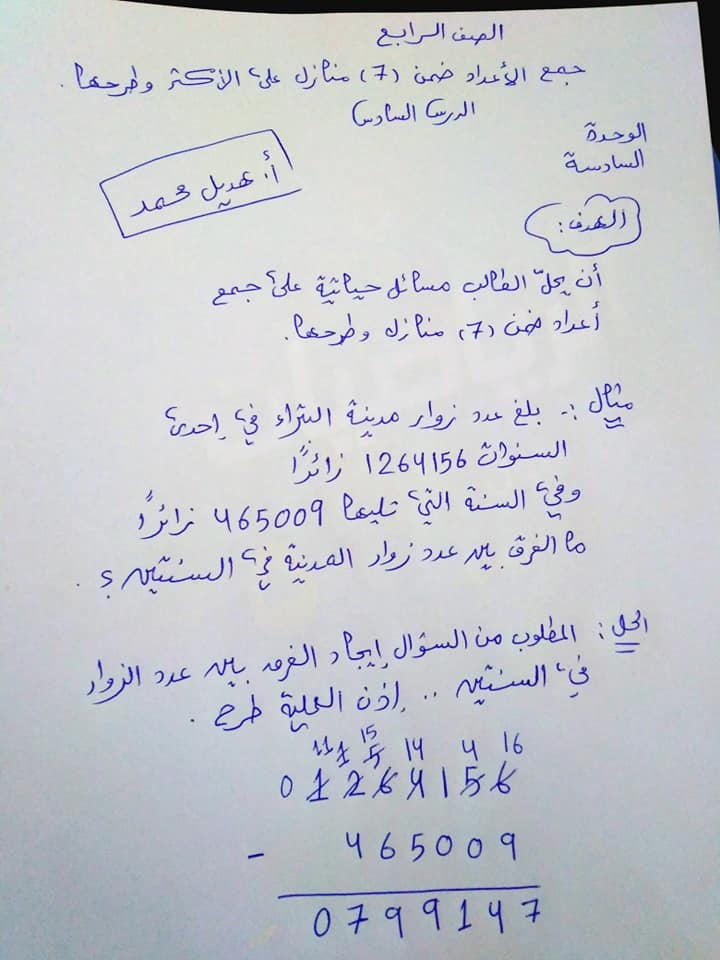 الصف الرابع
جمع الأعداد ضمن (7) منازل على الأكثر وطرحها.
الدرس السادس
الوحدة
السادسة
أ. هديل محمد
الهدف:
أن يحلّ الطالب مسائل حياتية على جمع
أعداد ضمن (7) منازل وطرحها.
مثال :- بلغ عدد زوار مدينة البتراء في إحدى
السنوات 1264156 زائرًا
وفي السنة التي تليها 465009 زائرًا
ما الفرق بين عدد زوار المدينة في السنتين ؟.
الحل : المطلوب من السؤال إيجاد الفرق بين عدد الزوار
في السنتين .. إذن العملية طرح .
11 1 15 5 14 4 16
0 1 2 6 4 1 5 6
- 4 6 5 0 0 9
0 7 9 9 1 4 7